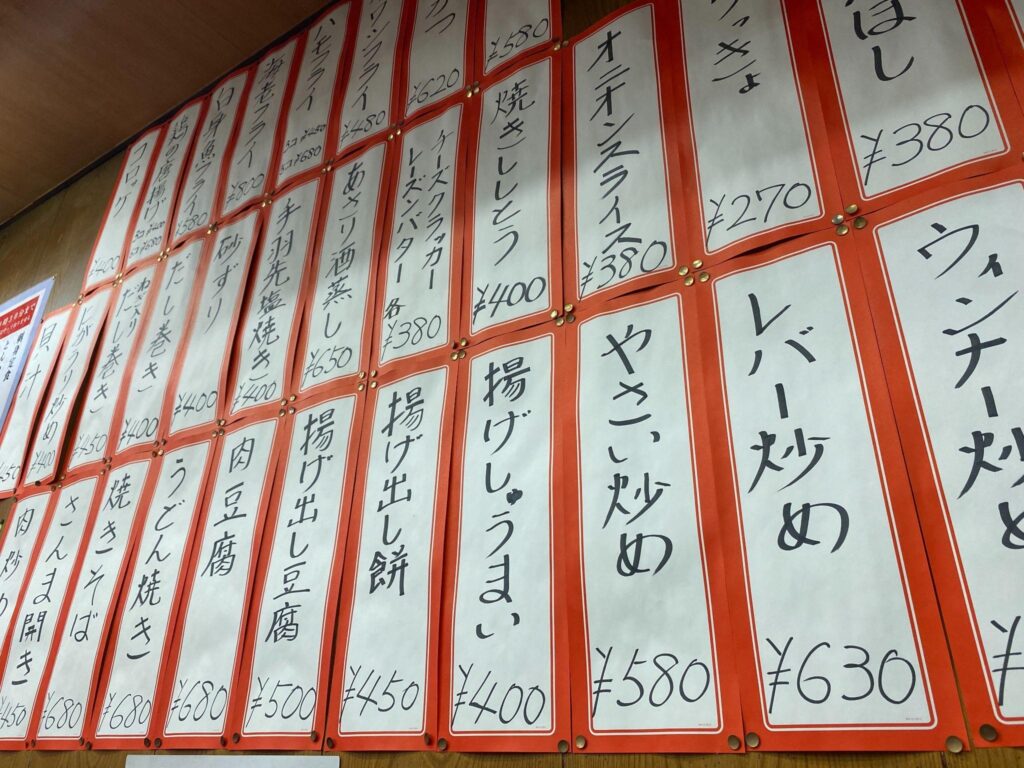 コロッケ
¥400
鶏の唐揚げ
3コ ¥450
5コ ¥680
白身魚フライ
¥580
海老フライ
¥800
ハモフライ
イワシフライ
¥480
かつ
¥620
¥580
らっきょ
¥270
ぼし
¥380
貝汁
たまり炒め
¥400
だし巻き
¥450
だし巻き
¥400
砂ずり
¥400
手羽先塩焼き
¥400
あさり酒蒸し
¥650
チーズクラッカー
レーズンバター 各
¥380
焼きししとう
¥400
オニオンスライス
¥380
肉炒め
¥450
さんま開き
¥680
焼きそば
¥680
うどん焼き
¥680
肉豆腐
¥680
揚げ出し豆腐
¥500
揚げ出し餅
¥450
揚げしゅうまい
¥400
やさい炒め
¥580
レバー炒め
¥630
ウィンナー炒め